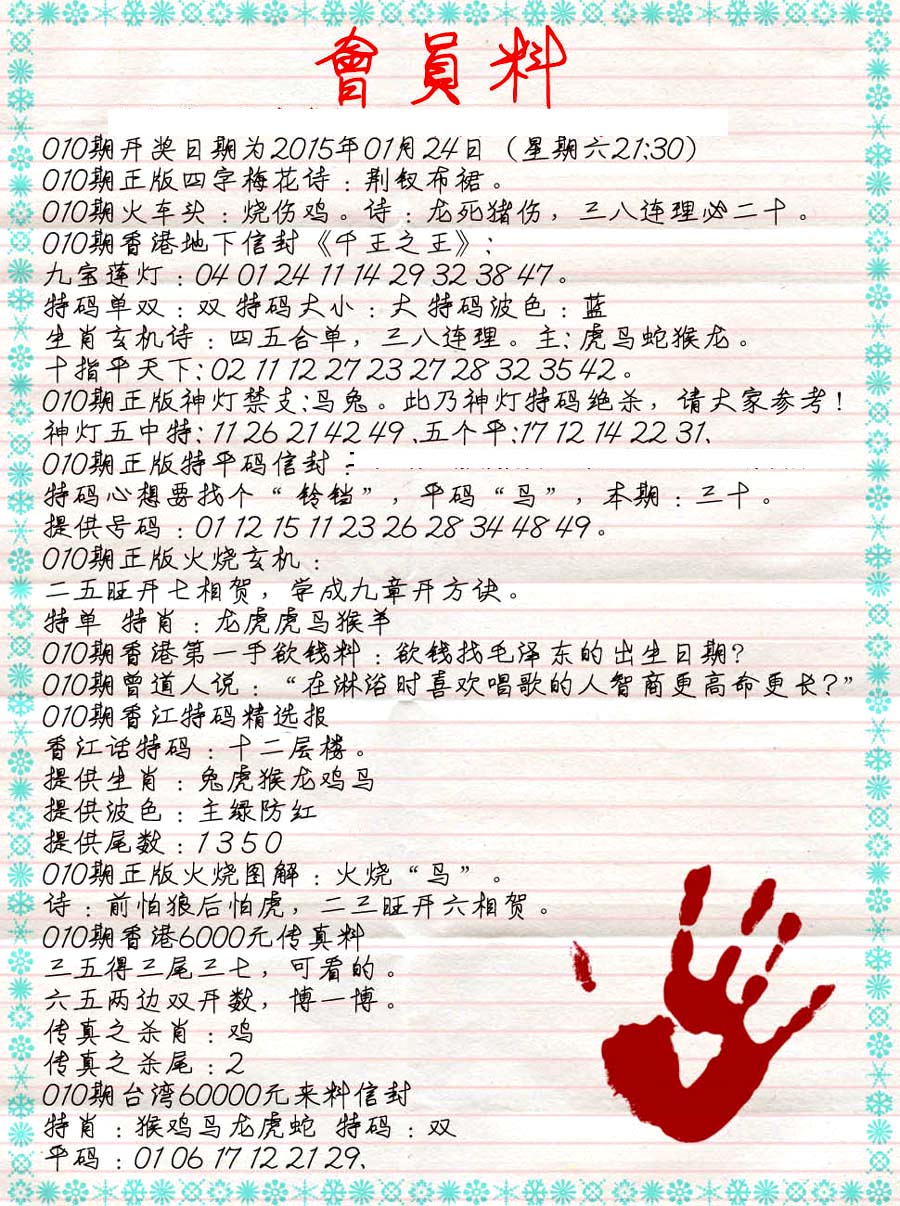 會員料
010期开奖日期为2015年01月24日（星期六21:30）
010期正版四字梅花诗：荆钗布裙。
010期火车头：烧伤鸡。诗：龙死猪伤，三八连理必二十。
010期香港地下信封《千王之王》:
九宝莲灯：04 01 24 11 14 29 32 38 47。
特码单双：双 特码大小：大 特码波色：蓝
生肖玄机诗：四五合单，三八连理。主:虎马蛇猴龙。
十指平天下:02 11 12 27 23 27 28 32 35 42。
010期正版神灯禁支:马兔。此乃神灯特码绝杀，请大家参考！
神灯五中特:11 26 21 42 49、五个平:17 12 14 22 31、
010期正版特平码信封：
特码心想要找个“铃铛”，平码“鸟”，本期：三十。
提供号码：01 12 15 11 23 26 28 34 48 49。
010期正版火烧玄机：
二五旺开七相贺，学成九章开方诀。
特单 特肖：龙虎虎马猴羊
010期香港第一手欲钱料：欲钱找毛泽东的出生日期？
010期曾道人说：“在淋浴时喜欢唱歌的人智商更高命更长？”
010期香江特码精选报
香江话特码：十二层楼。
提供生肖：兔虎猴龙鸡马
提供波色：主绿防红
提供尾数：1 3 5 0
010期正版火烧图解：火烧“鸟”。
诗：前怕狼后怕虎，二三旺开六相贺。
010期香港6000元传真料
三五得三尾三七，可看的。
六五两边双开数，博一博。
传真之杀肖：鸡
传真之杀尾：2
010期台湾60000元来料信封
特肖：猴鸡马龙虎蛇 特码：双
平码：01 06 17 12 21 29、